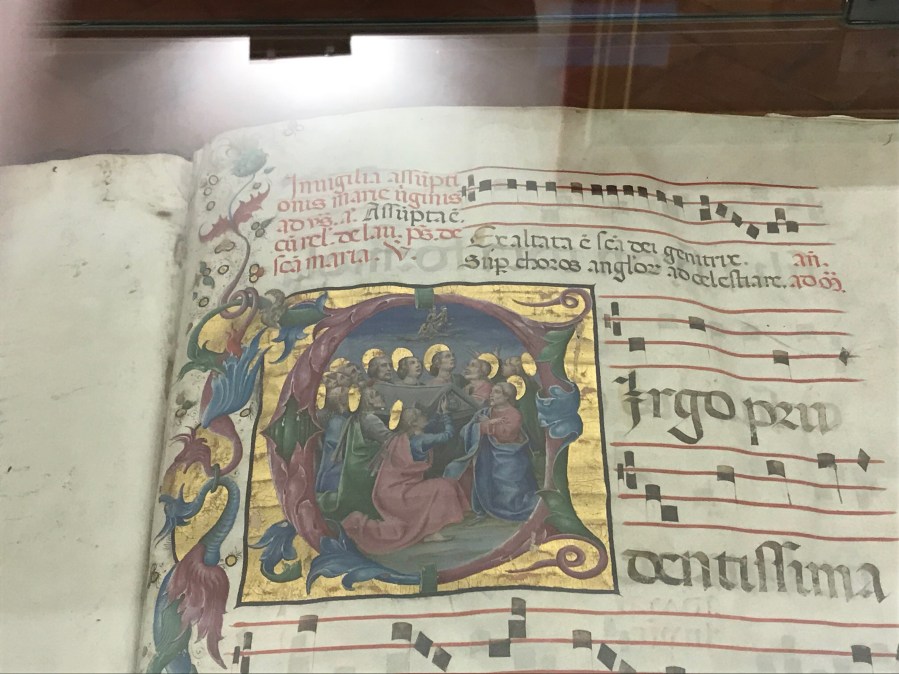 In uigilia assũpti
onis marie ũginis
ad vƺ̃. ã. Assũpta ẽ.
cũ rel. de lau. pš. de
sc̃a maria. V.
Exaltata ẽ sc̃a dei genitrix. añ.
Sup̃ choros angl'oꝝ ad celestia re. ad
irgo pru
dentissima